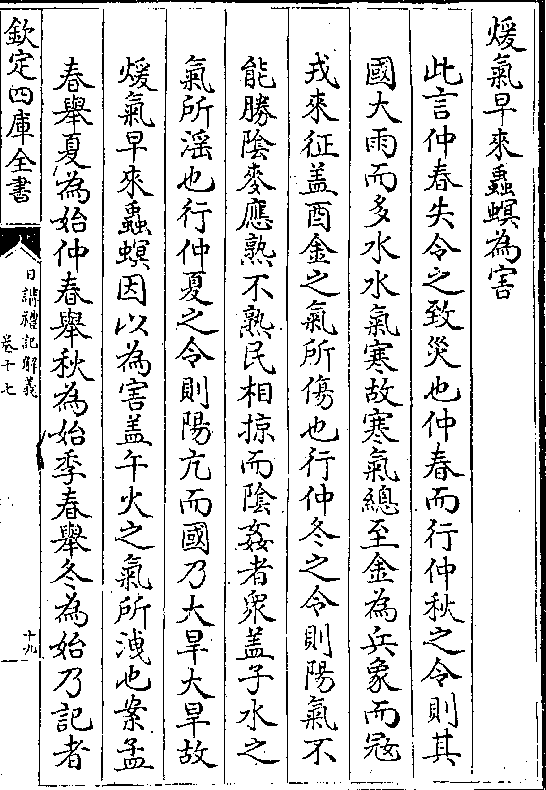 煖氣早來蟲螟為害
此言仲春失令之致災也仲春而行仲秋之令則其
國大雨而多水水氣寒故寒氣總至金為兵象而冦
戎來征盖酉金之氣所傷也行仲冬之令則陽氣不
能勝陰麥應熟不熟民相掠而陰姦者衆盖子水之
氣所滛也行仲夏之令則陽亢而國乃大旱大旱故
煖氣早來蟲螟因以為害盖午火之氣所洩也案孟
春舉夏為始仲春舉秋為始季春舉冬為始乃記者
欽定四庫全書
日講禮記解義
卷十七
十九